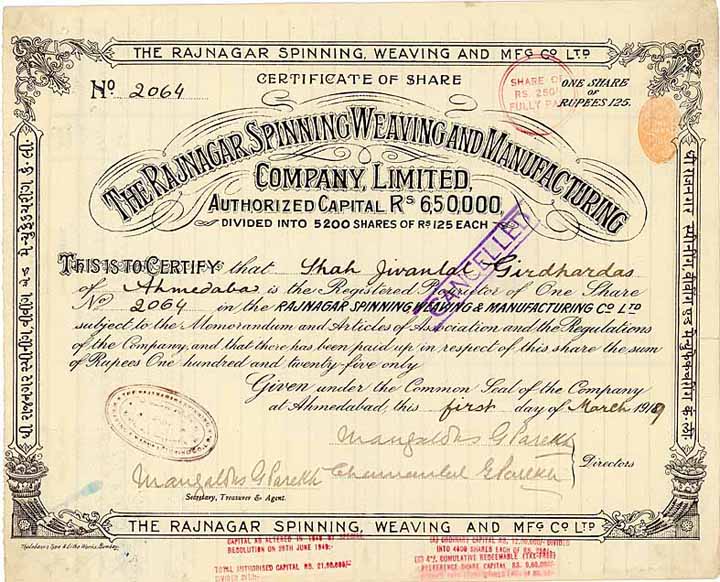 THE RAJNAGAR SPINNING, WEAVING AND MFG CO LTD
CERTIFICATE OF SHARE
No 2064
SHARE OF
RS. 250/-
FULLY PAID
ONE SHARE
OF
RUPEES 125.
THE RAJNAGAR SPINNING WEAVING AND MANUFACTURING
COMPANY, LIMITED,
AUTHORIZED CAPITAL RS 6,50,000,
DIVIDED INTO 5200 SHARES OF RS 125 EACH
CANCELLED
THIS IS TO CERTIFY that Shah Jivanlal Girdhardas
of Ahmedabad is the Registered Proprietor of One Share
No 2064 in the RAJNAGAR SPINNING WEAVING & MANUFACTURING CO LTD
subject to the Memorandum and Articles of Association and the Regulations
of the Company, and that there has been paid up in respect of this share the sum
of Rupees One hundred and twenty-five only
Given under the Common Seal of the Company
at Ahmedabad, this first day of March 1919
Mangaldas G Parekh
Mangaldas G Parekh Chamanlal G Parekh
Directors
Secretary, Treasurer & Agent.
THE RAJNAGAR SPINNING, WEAVING AND MFG CO LTD
CAPITAL AS ALTERED IN
RESOLUTION ON 29TH JUNE 1949:-
TOTAL AUTHORISED CAPITAL RS. 21,60,000/-
DIVIDED INTO:-
(A) ORDINARY CAPITAL RS. 12,00,000/- DIVIDED
INTO 4800 SHARES EACH OF RS. 250/-
CUMULATIVE REDEEMABLE (TAX-FREE)
PREFERENCE SHARE CAPITAL RS. 9,60,000/-